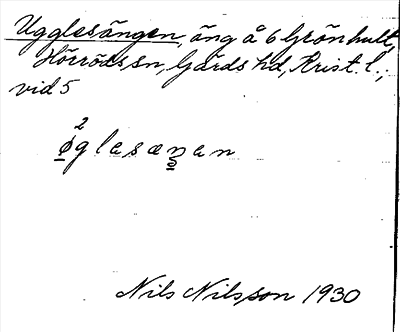 Ugglesängen, äng å 6 Grönhult,
Hörröds sn, Gärds hd, Krist. l.,
vid 5
2
ø̱glesæn̲an
Nils Nilsson 1930